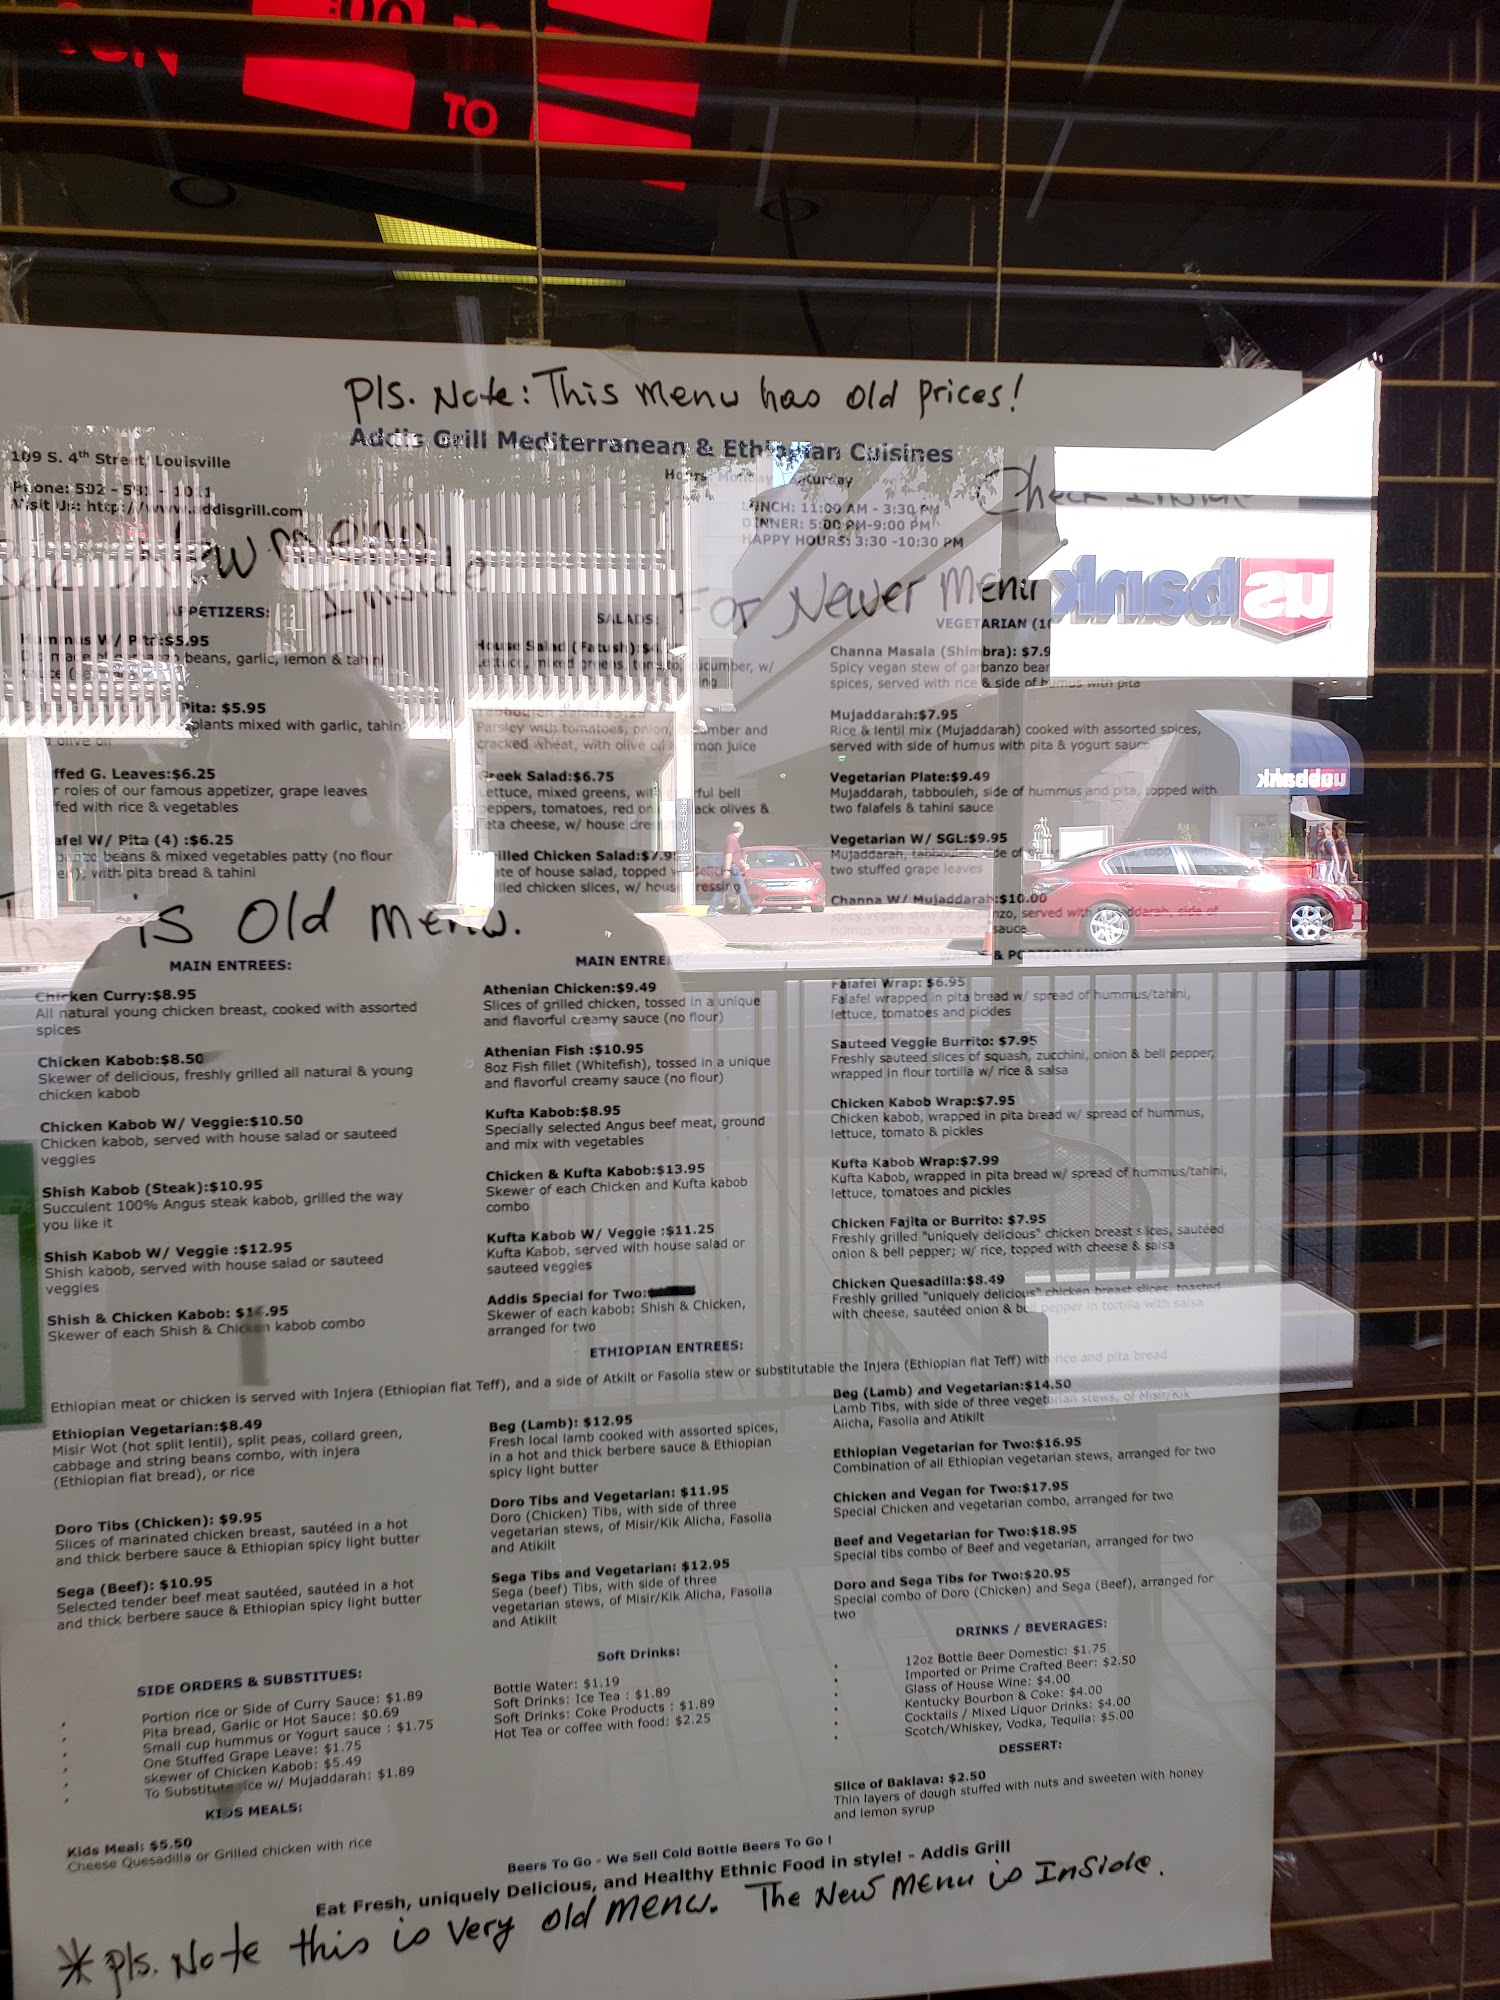 TO
Pls. Note: This menu has old prices!
Addis Grill Mediterranean & Ethiopian Cuisines
109 S. 4th Street, Louisville
Visit Us: http://www.addisgrill.com
LUNCH: 11:00 AM - 3:30 PM
DINNER: 5:00 PM-9:00 PM
HAPPY HOURS: 3:30 -10:30 PM
Check Inside
For Newer Menu
See New menu
Inside
us bank
usbank
APPETIZERS:
Hummus W/ Pita:$5.95
beans, garlic, lemon & tahini
Pita: $5.95
plants mixed with garlic, tahini
olive oil
ffed G. Leaves:$6.25
roles of our famous appetizer, grape leaves
fed with rice & vegetables
afel W/ Pita (4) :$6.25
beans & mixed vegetables patty (no flour
with pita bread & tahini
This is Old menu.
SALADS:
House Salad (Fatush):
Lettuce, mixed greens, tomato, cucumber, w/
Parsley with tomatoes, onion,
cracked wheat, with olive oil
Greek Salad:$6.75
Lettuce, mixed greens, with
peppers, tomatoes, red on ack olives &
feta cheese, w/ house dressing
Grilled Chicken Salad:$7.9
ate of house salad, topped
lled chicken slices, w/ house dressing
VEGETARIAN
Channa Masala (Shimbra): $7.9
Spicy vegan stew of garbanzo bean
spices, served with rice & side of humus with pita
Mujaddarah:$7.95
Rice & lentil mix (Mujaddarah) cooked with assorted spices,
served with side of humus with pita & yogurt sauce
Vegetarian Plate:$9.49
Mujaddarah, tabbouleh, side of hummus and pita, topped with
two falafels & tahini sauce
Vegetarian W/ SGL:$9.95
Mujaddarah, tabbouleh, side of
two stuffed grape leaves
Channa W/ Mujaddarah:$10.00
served with Mujaddarah, side of
humus with pita & yogurt sauce
MAIN ENTREES:
Chicken Curry:$8.95
All natural young chicken breast, cooked with assorted
spices
Chicken Kabob:$8.50
Skewer of delicious, freshly grilled all natural & young
chicken kabob
Chicken Kabob W/ Veggie:$10.50
Chicken kabob, served with house salad or sauteed
veggies
Shish Kabob (Steak):$10.95
Succulent 100% Angus steak kabob, grilled the way
you like it
Shish Kabob W/ Veggie :$12.95
Shish kabob, served with house salad or sauteed
veggies
Shish & Chicken Kabob:
Skewer of each Shish & Chicken kabob combo
MAIN ENTRE
Athenian Chicken:$9.49
Slices of grilled chicken, tossed in a unique
and flavorful creamy sauce (no flour)
Athenian Fish :$10.95
8oz Fish fillet (Whitefish), tossed in a unique
and flavorful creamy sauce (no flour)
Kufta Kabob:$8.95
Specially selected Angus beef meat, ground
and mix with vegetables
Chicken & Kufta Kabob:$13.95
Skewer of each Chicken and Kufta kabob
combo
Kufta Kabob W/ Veggie :$11.25
Kufta Kabob, served with house salad or
sauteed veggies
Addis Special for Two:
Skewer of each kabob: Shish & Chicken,
arranged for two
WRAPS & PORTION LUNCH:
Falafel Wrap: $6.95
Falafel wrapped in pita bread w/ spread of hummus/tahini,
lettuce, tomatoes and pickles
Sauteed Veggie Burrito: $7.95
Freshly sauteed slices of squash, zucchini, onion & bell pepper,
wrapped in flour tortilla w/ rice & salsa
Chicken Kabob Wrap:$7.95
Chicken kabob, wrapped in pita bread w/ spread of hummus,
lettuce, tomato & pickles
Kufta Kabob Wrap:$7.99
Kufta Kabob, wrapped in pita bread w/ spread of hummus/tahini,
lettuce, tomatoes and pickles
Chicken Fajita or Burrito: $7.95
Freshly grilled "uniquely delicious" chicken breast slices, sautéed
onion & bell pepper; w/ rice, topped with cheese & salsa
Chicken Quesadilla:$8.49
Freshly grilled "uniquely delicious" chicken breast slices, toasted
with cheese, sautéed onion & bell pepper in tortilla with salsa
ETHIOPIAN ENTREES:
Ethiopian meat or chicken is served with Injera (Ethiopian flat Teff), and a side of Atkilt or Fasolia stew or substitutable the Injera (Ethiopian flat Teff) with rice and pita bread
Ethiopian Vegetarian:$8.49
Misir Wot (hot split lentil), split peas, collard green,
cabbage and string beans combo, with injera
(Ethiopian flat bread), or rice
Doro Tibs (Chicken): $9.95
Slices of marinated chicken breast, sautéed in a hot
and thick berbere sauce & Ethiopian spicy light butter
Sega (Beef): $10.95
Selected tender beef meat sautéed, sautéed in a hot
and thick berbere sauce & Ethiopian spicy light butter
Beg (Lamb): $12.95
Fresh local lamb cooked with assorted spices,
in a hot and thick berbere sauce & Ethiopian
spicy light butter
Doro Tibs and Vegetarian: $11.95
Doro (Chicken) Tibs, with side of three
vegetarian stews, of Misir/Kik Alicha, Fasolia
and Atikilt
Sega Tibs and Vegetarian: $12.95
Sega (beef) Tibs, with side of three
vegetarian stews, of Misir/Kik Alicha, Fasolia
and Atikilt
Beg (Lamb) and Vegetarian:$14.50
Lamb Tibs, with side of three vegetarian stews, of Misir/Kik
Alicha, Fasolia and Atikilt
Ethiopian Vegetarian for Two:$16.95
Combination of all Ethiopian vegetarian stews, arranged for two
Chicken and Vegan for Two:$17.95
Special Chicken and vegetarian combo, arranged for two
Beef and Vegetarian for Two:$18.95
Special tibs combo of Beef and vegetarian, arranged for two
Doro and Sega Tibs for Two:$20.95
Special combo of Doro (Chicken) and Sega (Beef), arranged for
two
SIDE ORDERS & SUBSTITUES:
Portion rice or Side of Curry Sauce: $1.89
Pita bread, Garlic or Hot Sauce: $0.69
Small cup hummus or Yogurt sauce : $1.75
One Stuffed Grape Leave: $1.75
skewer of Chicken Kabob: $5.49
To Substitute rice w/ Mujaddarah: $1.89
KIDS MEALS:
Kids Meal: $5.50
Cheese Quesadilla or Grilled chicken with rice
Soft Drinks:
Bottle Water: $1.19
Soft Drinks: Ice Tea : $1.89
Soft Drinks: Coke Products : $1.89
Hot Tea or coffee with food: $2.25
DRINKS / BEVERAGES:
12oz Bottle Beer Domestic: $1.75
Imported or Prime Crafted Beer: $2.50
Glass of House Wine: $4.00
Kentucky Bourbon & Coke: $4.00
Cocktails / Mixed Liquor Drinks: $4.00
Scotch/Whiskey, Vodka, Tequila: $5.00
DESSERT:
Slice of Baklava: $2.50
Thin layers of dough stuffed with nuts and sweeten with honey
and lemon syrup
Beers To Go - We Sell Cold Bottle Beers To Go !
Eat Fresh, uniquely Delicious, and Healthy Ethnic Food in style! - Addis Grill
* Pls. Note this is very old menu. The New menu is Inside.